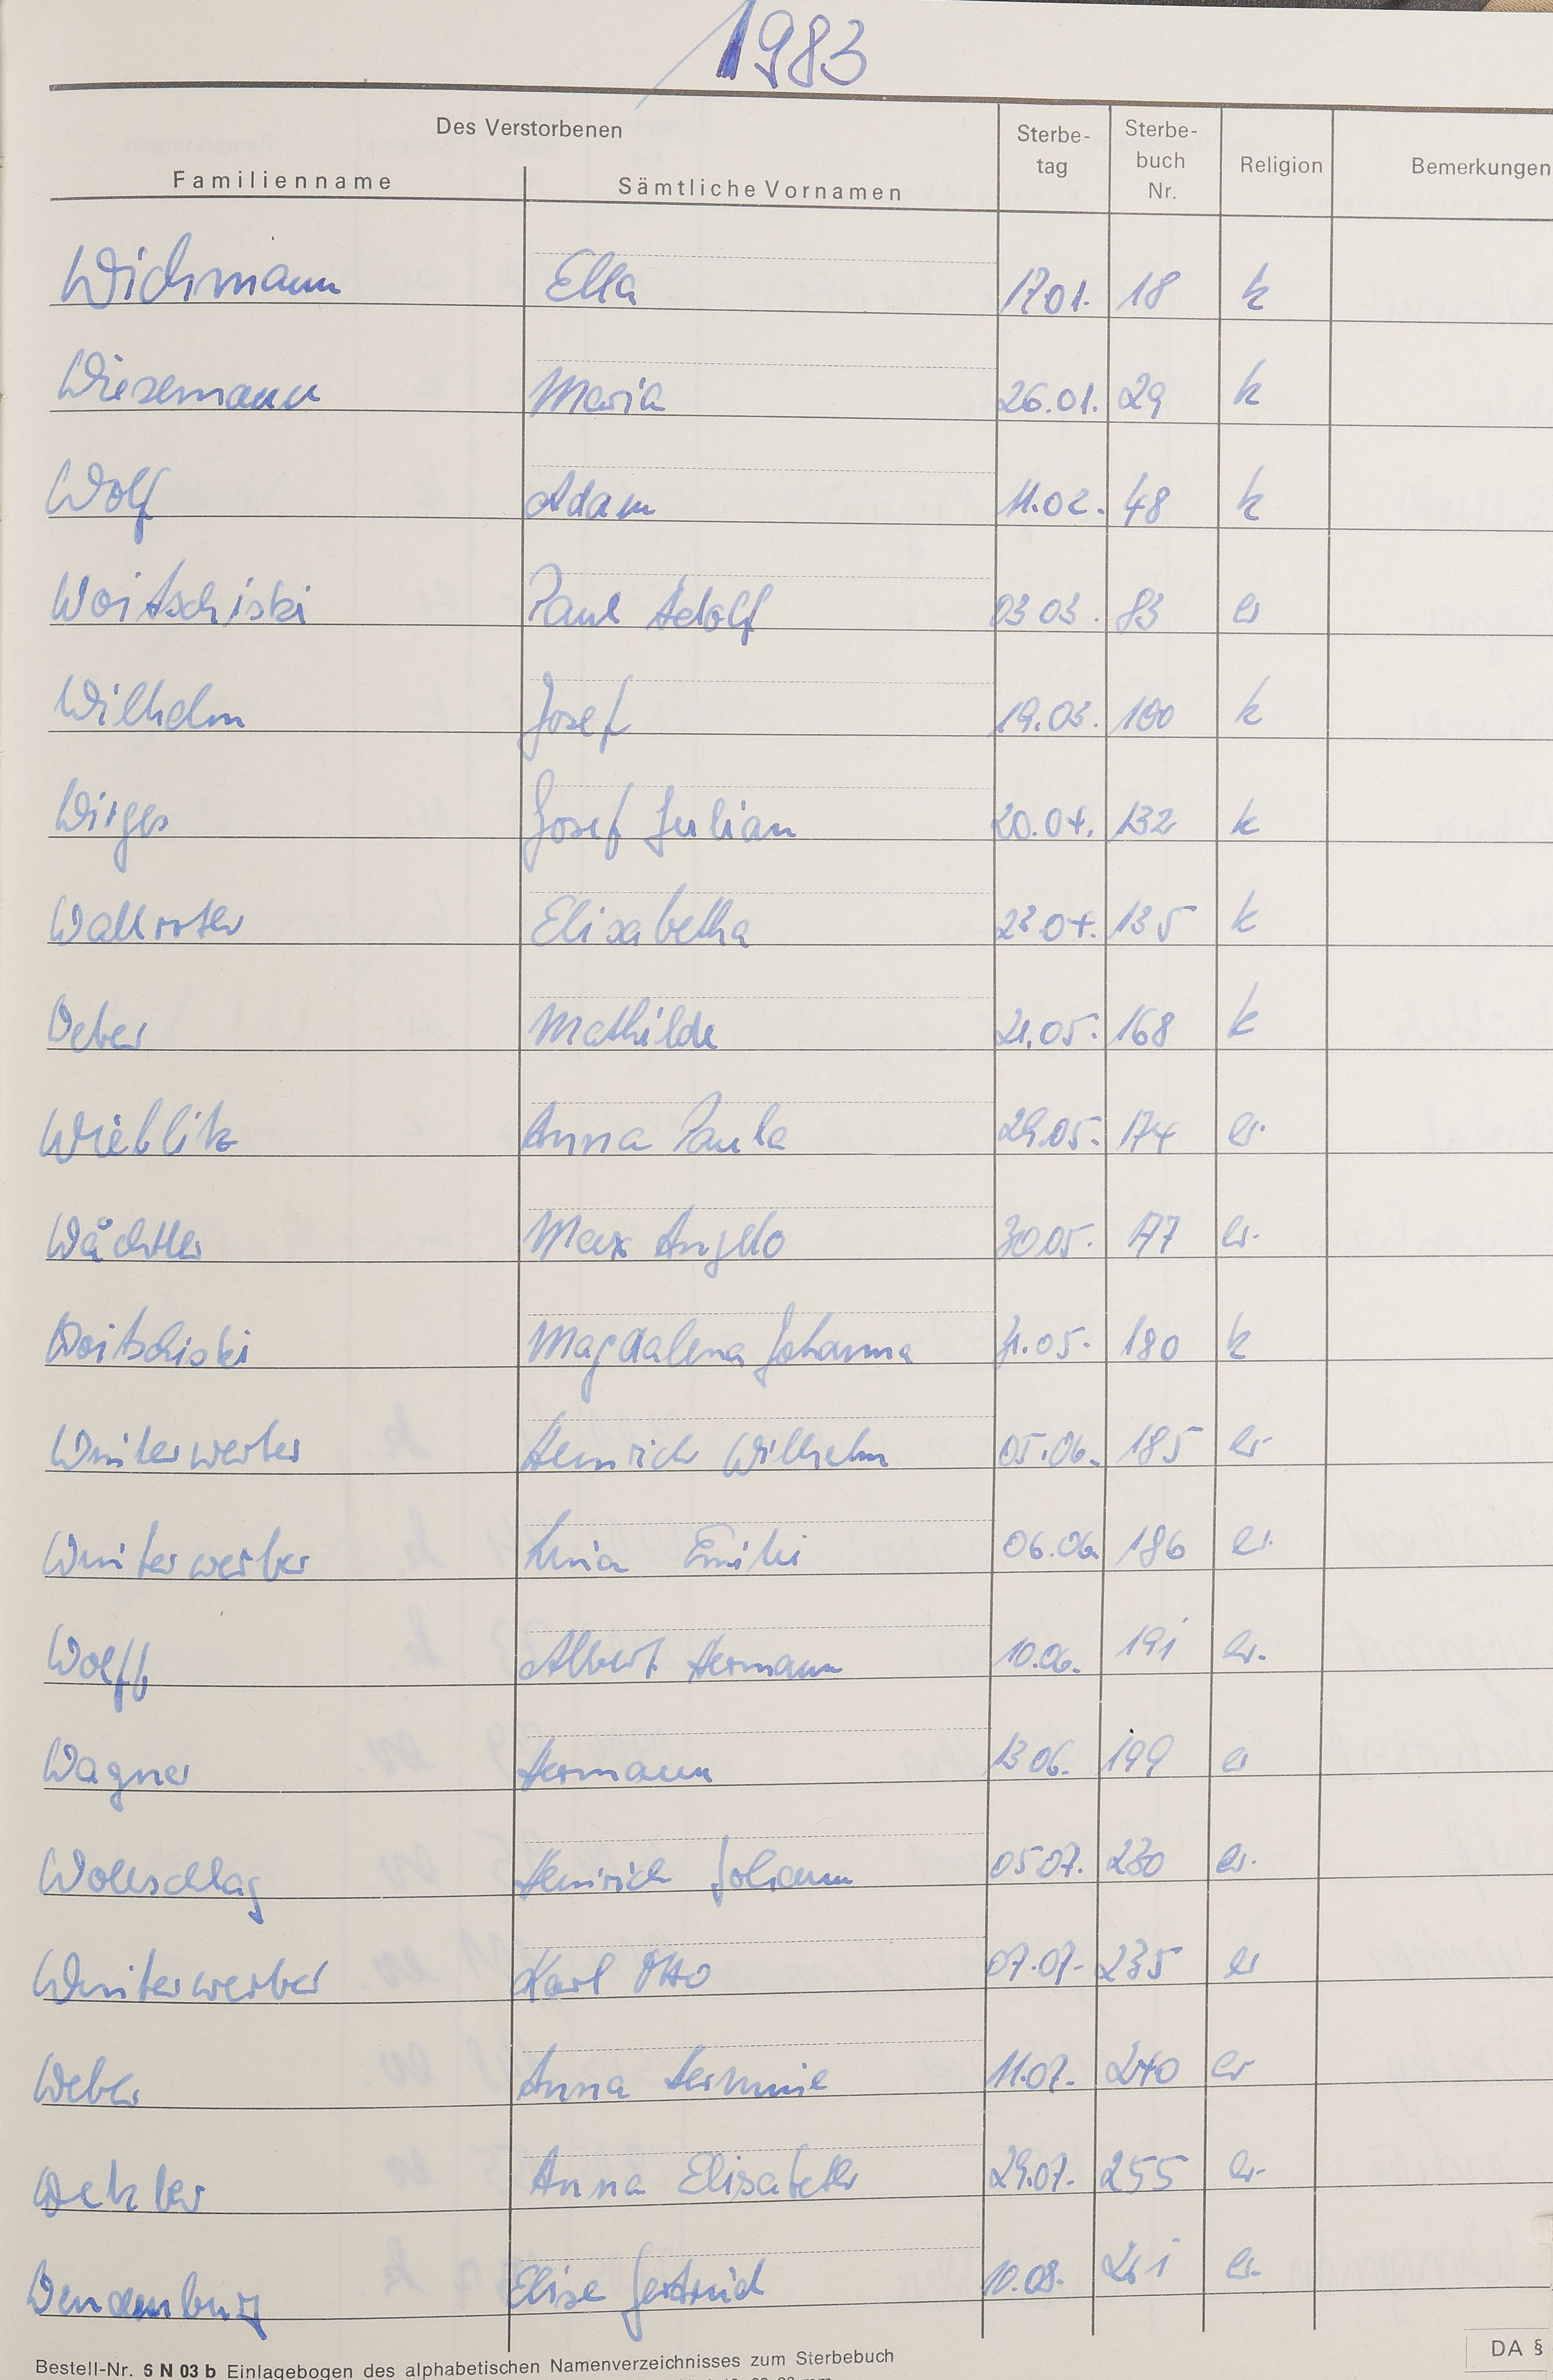 1983
Des Verstorbenen
Familienname Sämtliche Vornamen Sterbe-tag Sterbe-buch Nr. Religion Bemerkungen
Wichmann Ella 17.01. 18 k
Wiesemann Maria 26.01. 29 k
Wolf Adam 11.02. 48 k
Woitschiski Paul Adolf 03 03. 83 ev
Wilhelm Josef 19.03. 100 k
Wirges Josef Julian 20.04. 132 k
Wallroter Elisabetha 23.04. 135 k
Weber Mathilde 21.05. 168 k
Wieblitz Anna Paula 29.05. 174 ev.
Wächtler Max Angelo 30.05. 177 ev.
Woitschiski Magdalena Johanna 31.05. 180 k
Winterwerber Heinrich Wilhelm 05.06. 185 ev
Winterwerber Emilie 06.06. 186 ev.
Wolff Albert Hermann 10.06. 191 ev.
Wagner Hermann 13 06. 199 ev
Wollschlag Heinrich Johann 05 07. 230 ev.
Winterwerber Karl Otto 07.07. 235 ev
Weber Anna Hermine 11.07. 240 ev
Anna Elisabeth 29.07. 255 ev.
Wendenburg Elise Gertrud 10.08. 261 ev.
Bestell-Nr. 6 N 03 b Einlagebogen des alphabetischen Namenverzeichnisses zum Sterbebuch
DA §